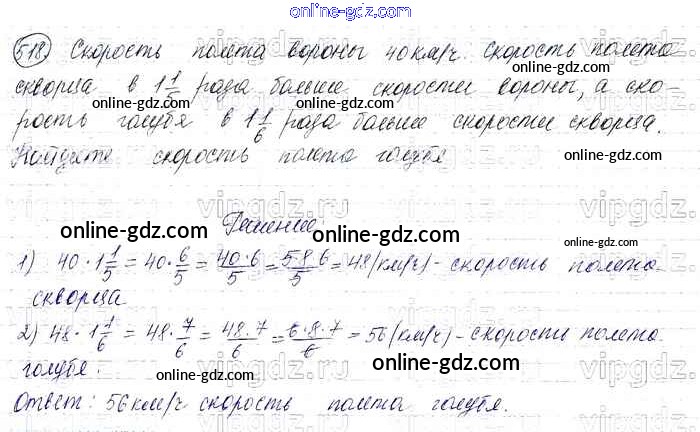 online-gdz.com
518) Скорость полета вороны 40 км/ч. Скорость полета
скворца в 1 1/5 раза больше скорости вороны, а ско-
online-gdz.com online-gdz.com
рость голубя в 1 1/6 раза больше скорости скворца.
Найдите скорость полета голубя
online-gdz.com online-gdz.com
vipgdz.ru vipgdz.ru
Решение:
online-gdz.com online-gdz.com
1) 40 · 1 1/5 = 40 · 6/5 = 40·6/5 = 5·8·6/5 = 48 (км/ч) - скорость полета
скворца
online-gdz.com online-gdz.com
2) 48 · 1 1/6 = 48 · 7/6 = 48·7/6 = 6·8·7/6 = 56 (км/ч) - скорости полета
голубя.
online-gdz.com online-gdz.com
Ответ: 56 км/ч скорость полета голубя.
online-gdz.com